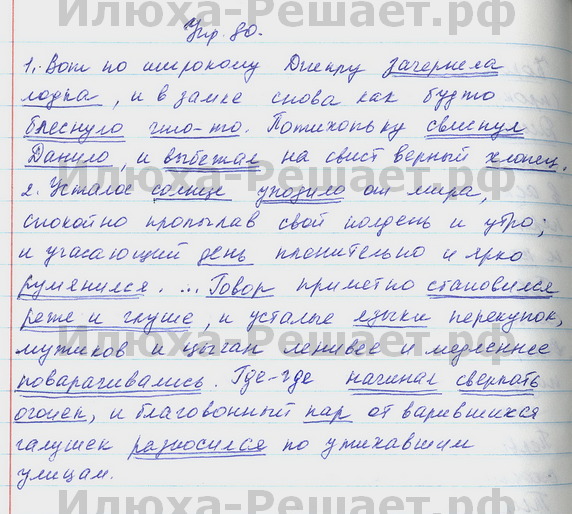 Илюха-Решает.рф
Упр. 80.
1. Вот по широкому Днепру зачернела
лодка, и в замке снова как будто
блеснуло что-то. Потихоньку свиснул
Данило, и выбежал на свист верный хлопец.
Илюха-Решает.рф
2. Усталое солнце уходило от мира,
спокойно пропылав свой полдень и утро;
и угасающий день пленительно и ярко
румянился. ... Говор приметно становился
реже и глуше, и усталые языки перекупок,
Илюха-Решает.рф
мужиков и цыган ленивее и медленнее
поварачивались. Где-где начинал сверкать
огонек, и благовонный пар от варившихся
галушек разносился по утихавшим
улицам.
Илюха-Решает.рф